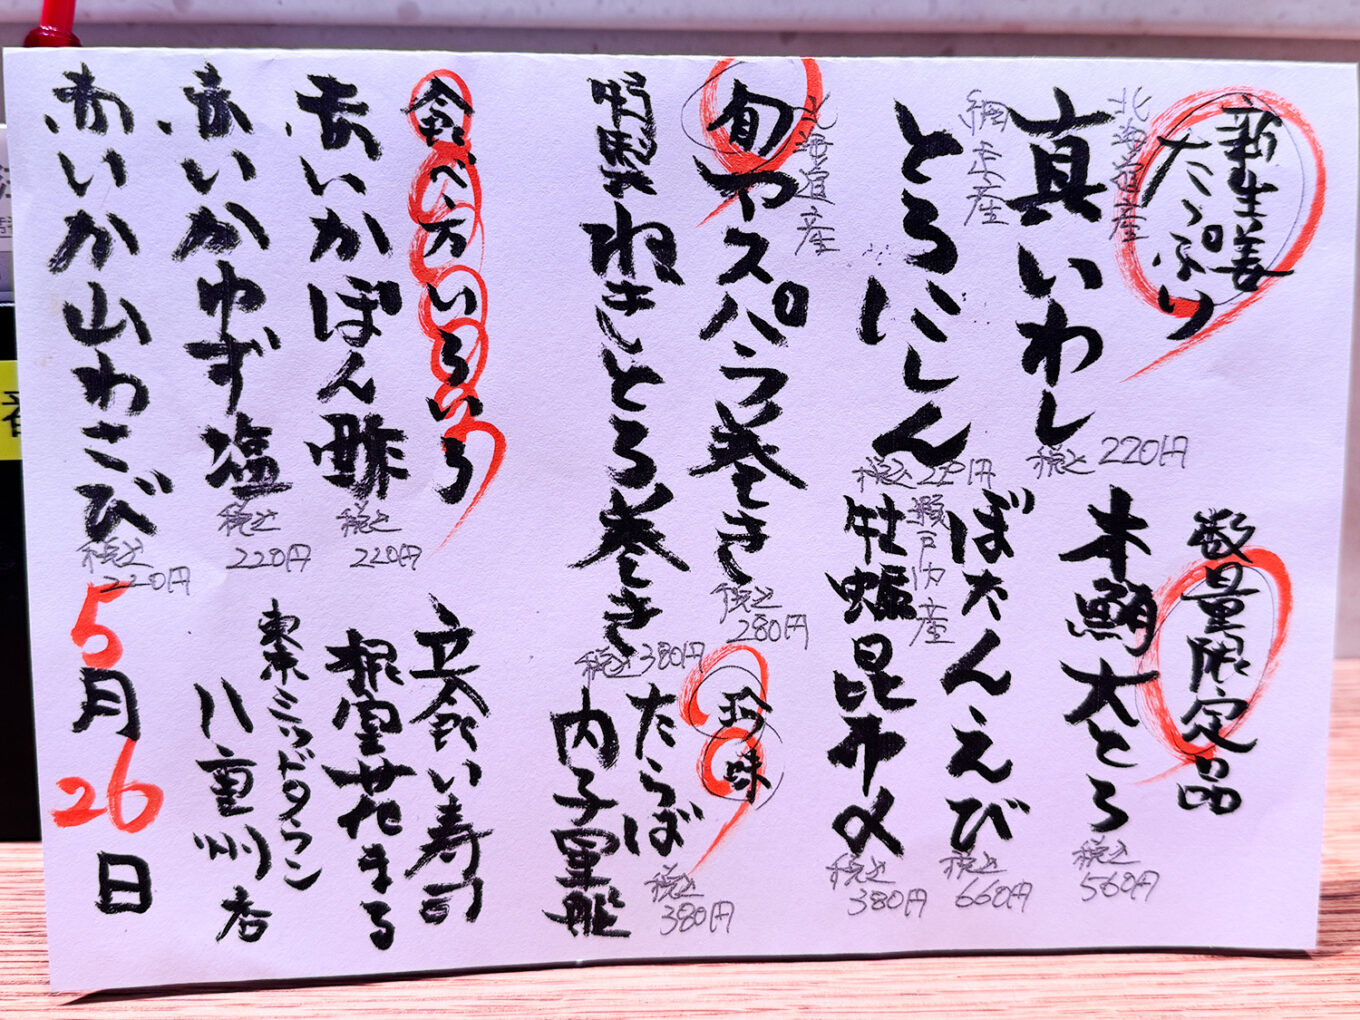 新生姜
たっぷり
北海道産
真いわし
税込 220円
網走産
とろにしん
税込 220円
北海道産
旬 アスパラ巻き
税込 280円
特製 ねぎとろ巻き
税込 380円
数量限定品
本鮪大とろ
税込 560円
ぼたんえび
税込 660円
瀬戸内産
牡蠣昆布〆
税込 380円
珍味
たらば
内子軍艦
税込 380円
食べ方いろいろ
赤いかぽん酢
税込 220円
赤いかゆず塩
税込 220円
赤いか山わさび
税込 220円
立食い寿司
根室花まる
東京ミッドタウン
八重洲店
5月26日